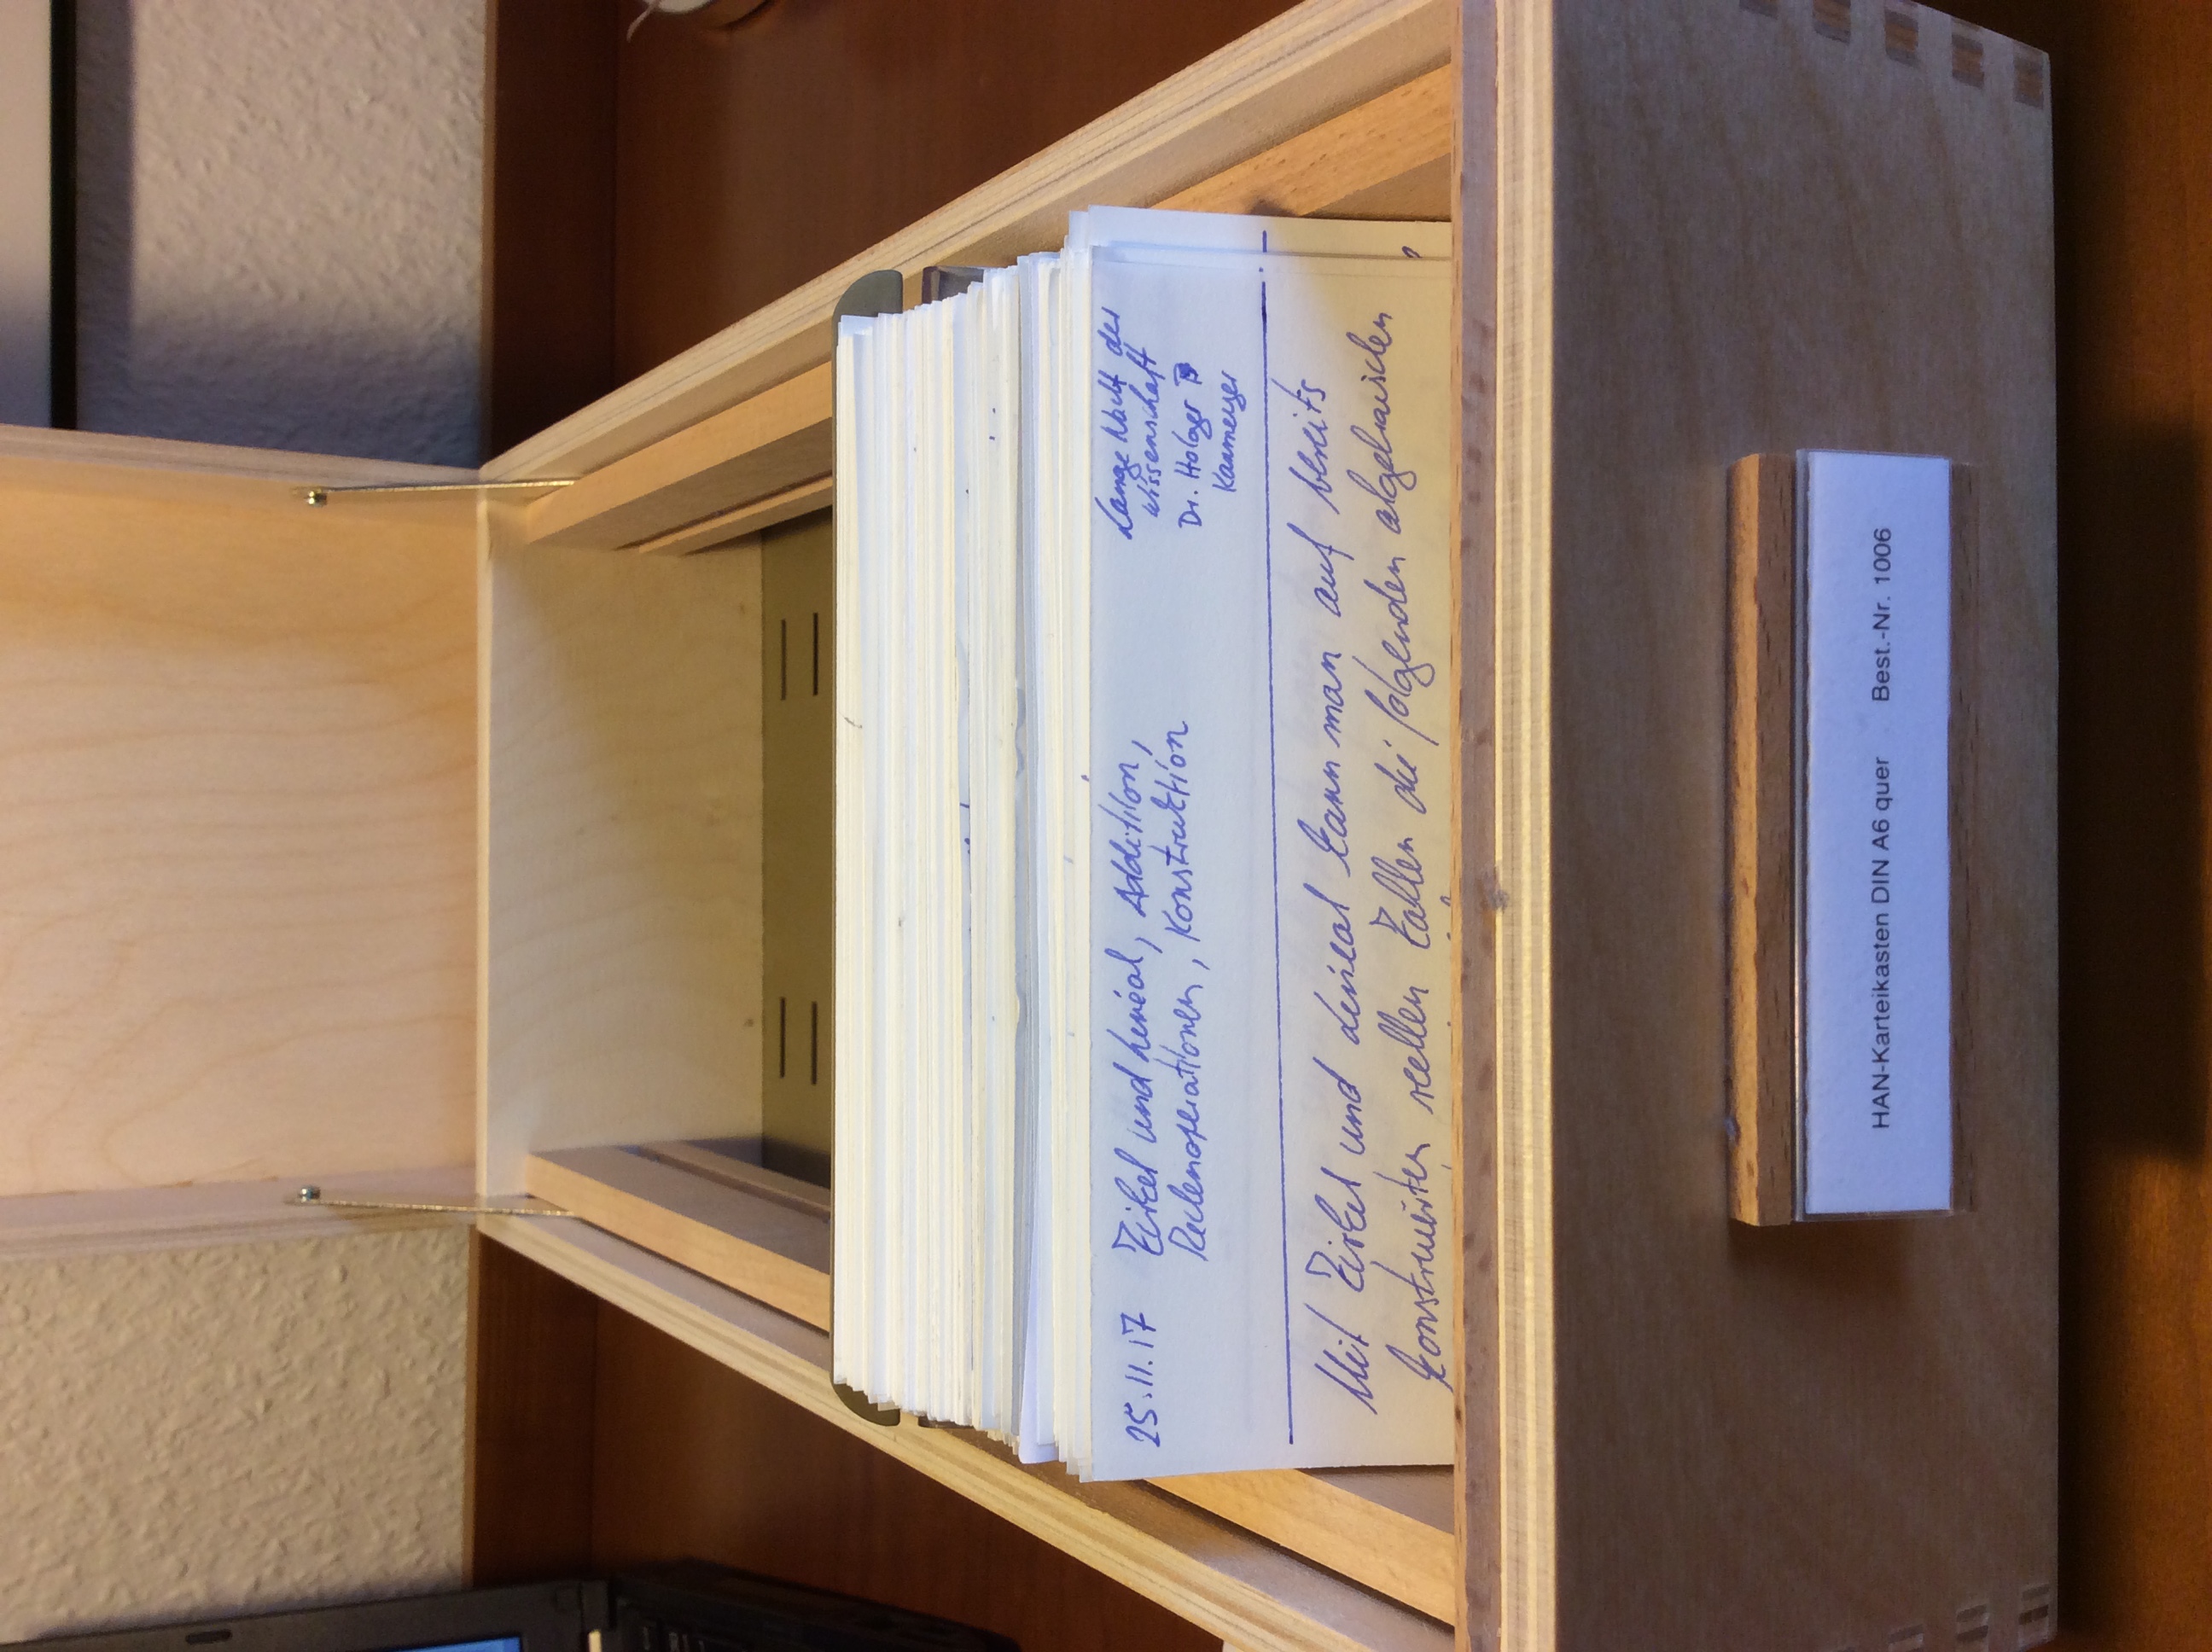 25.11.17 Zirkel und Lineal, Addition,
Rechenoperationen, Konstruktion
Lange Nacht der
Wissenschaft
Dr. Holger
Mit Zirkel und Lineal kann man auf bereits
konstruierten reellen Zahlen die folgenden algebraischen
HAN-Karteikasten DIN A6 quer Best.-Nr. 1006